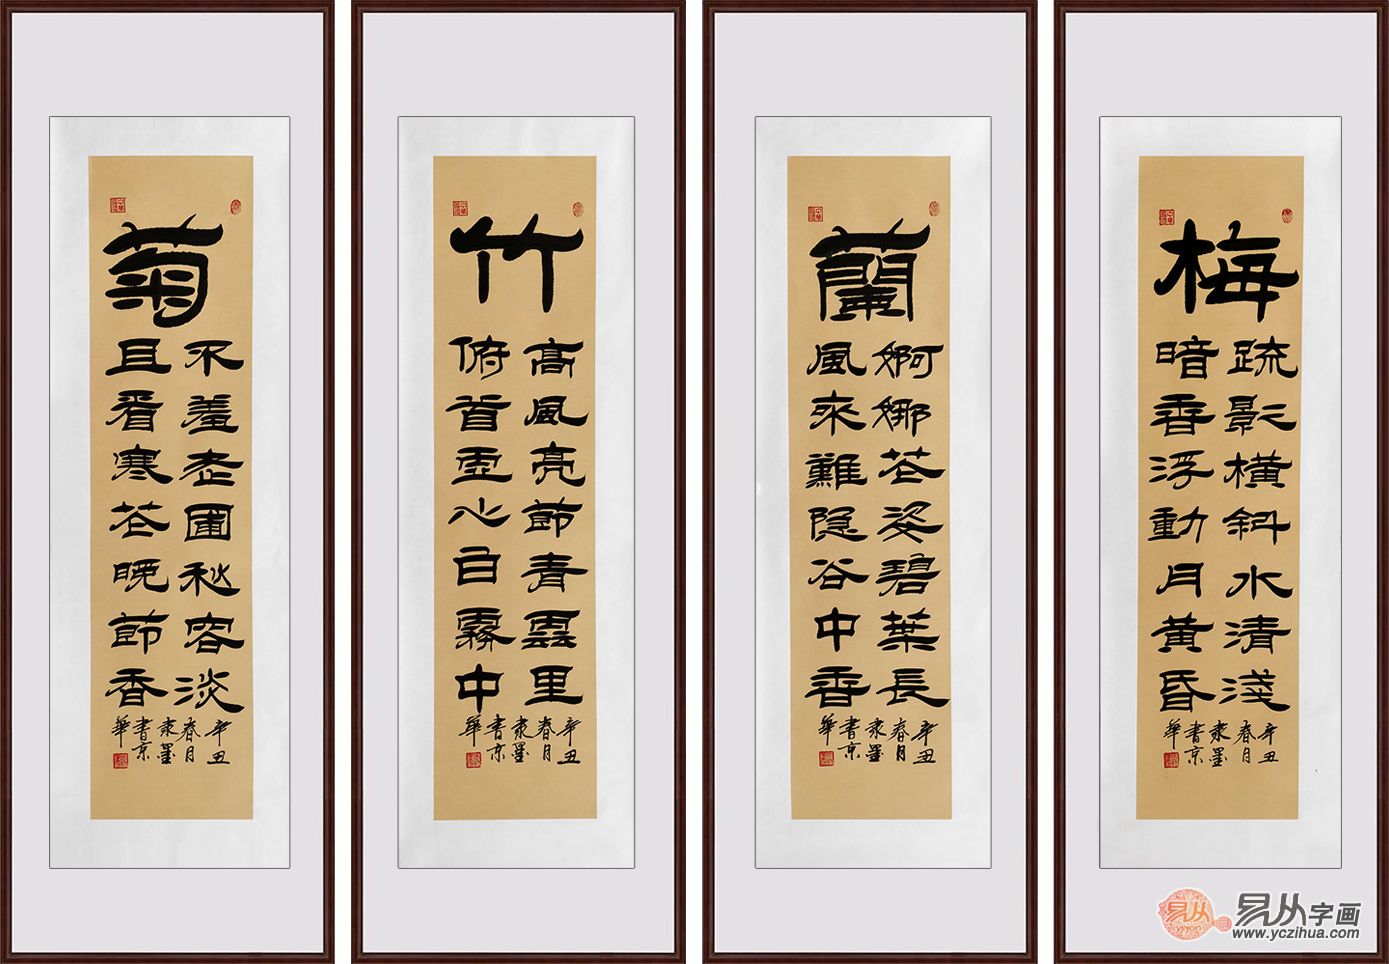 梅
疏影横斜水清淺
暗香浮動月黄昏
辛丑
春月
隶墨
書京
華
蘭
婀娜花姿碧葉長
風來難隐谷中香
辛丑
春月
隶墨
書京
華
竹
高風亮節青雲里
俯首虚心白霧中
辛丑
春月
隶墨
書京
華
菊
不羞老圃秋容淡
且看寒花晚節香
辛丑
春月
隶墨
書京
華
易从
yejon
易从字画
www.yczihua.com